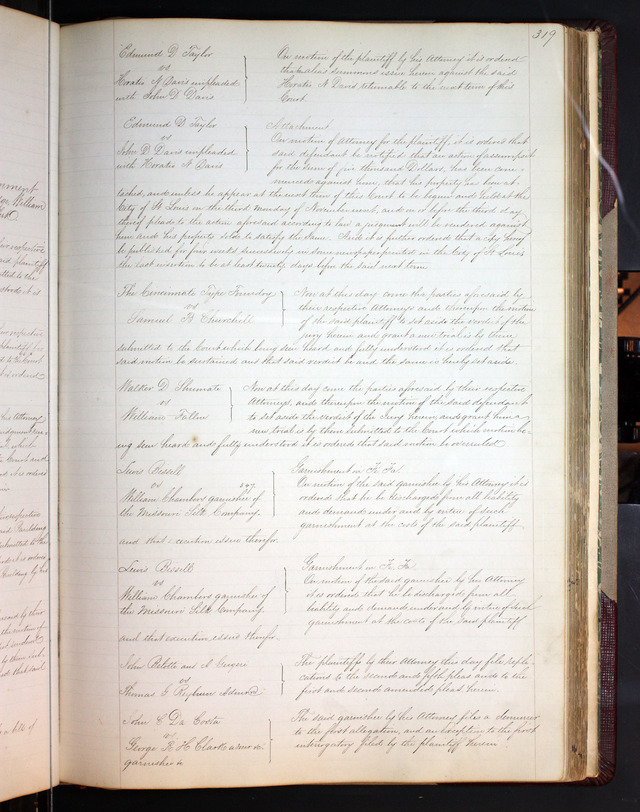 319
Edmund D Taylor
vs
Horatio N Davis impleaded
with John D Davis
On motion of the plaintiff by his Attorney it is ordered
that alias summons issue herein against the said
Horatio N Davis returnable to the next term of this
Court.
Edmund D Taylor
vs
John D Davis impleaded
with Horatio N Davis
Attachment
On motion of Attorney for the plaintiff, it is ordered that
said defendant be notified that an action of assumpsit
for the sum of five thousand Dollars, has been com-
menced against him, that his property has been at-
tached, and unless he appear at the next term of this Court to be begun and held at the
City of St Louis on the third Monday of November next, and on or before the third day
thereof plead to the action aforesaid according to law a judgment will be rendered against
him and his property sold to satisfy the same. And it is further ordered that a copy hereof
be published for four weeks successively in some newspaper printed in the City of St Louis
the last insertion to be at least twenty days before the said next term
The Cincinnati Type Foundry
vs
Samuel B Churchill
Now at this day come the parties aforesaid by
their respective Attorneys and thereupon the motion
of the said plaintiff to set aside the verdict of the
jury herein and grant a new trial is by them
submitted to the Court which being seen heard and fully understood it is ordered that
said motion be sustained and that said verdict be and the same is hereby set aside.
Walker D Shumate
vs
William Fuller
Now at this day come the parties aforesaid by their respective
Attorneys, and thereupon the motion of the said defendant
to set aside the verdict of the Jury herein and grant him a
new trial is by them submitted to the Court which motion be-
ing seen heard and fully understood it is ordered that said motion be overruled
Lewis Bissell
vs 297
William Chambers garnishee of
the Missouri Silk Company.
Garnishment on Fi Fa
On motion of the said garnishee by his Attorney it is
ordered that he be discharged from all liability
and demand under and by virtue of such
garnishment at the costs of the said plaintiff
and that execution issue therefor.
Lewis Bissell
vs
William Chambers garnishee of
the Missouri Silk Company.
Garnishment on Fi Fa
On motion of the said garnishee by his Attorney
it is ordered that he be discharged from all
liability and demand under and by virtue of such
garnishment at the costs of the said plaintiff
and that execution issue therefor.
John Bilotte and
vs
Thomas G Reyburn
The plaintiffs by their Attorney this day file repli-
cations to the second and fifth pleas and to the
first and second amended pleas herein.
John C Da Costa
vs
George R H Clark
garnishee
The said garnishee by his Attorney files a demurrer
to the first allegation, and an exception to the first
interrogatory filed by the plaintiff herein